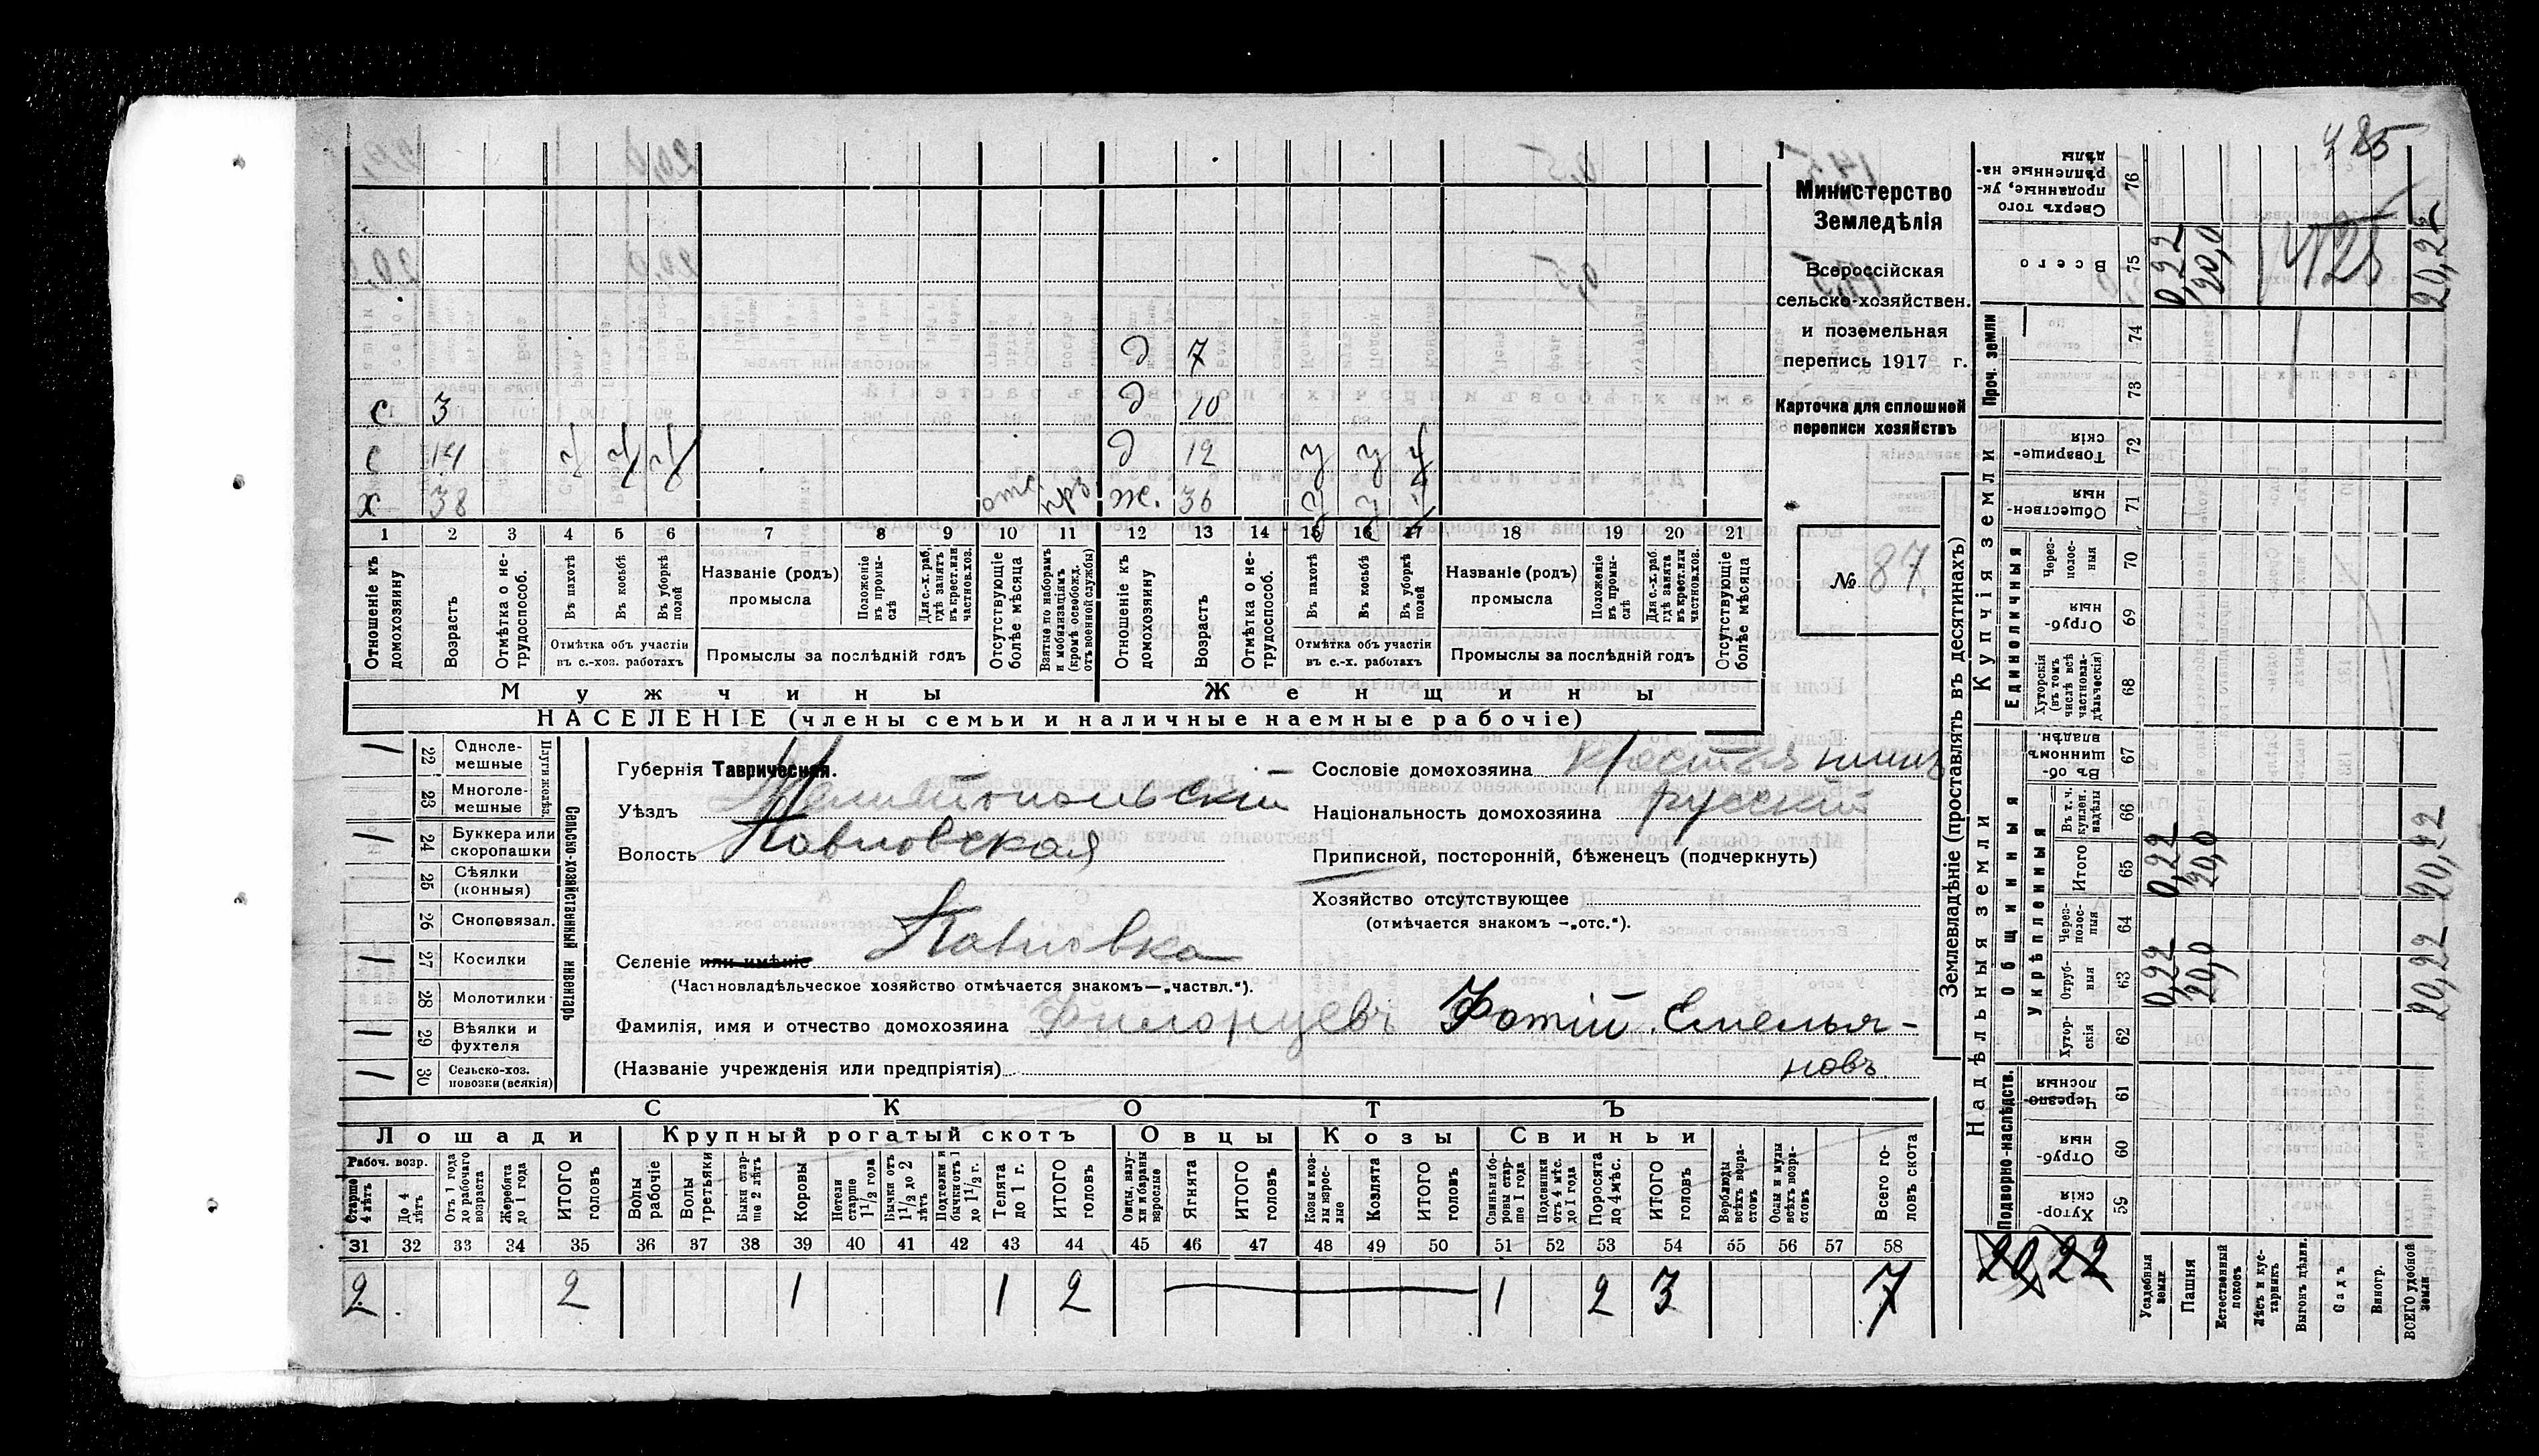 485
Министерство
Земледѣлія
Всероссійская
сельско-хозяйствен.
и поземельная
перепись 1917 г.
Карточка для сплошной
переписи хозяйствъ
№ 87.
д 7
с 3 д 10
с 14 ч ч ч д 12 у у у
х 38 отс. прз. ж. 36 у у у
1 2 3 4 5 6 7 8 9 10 11 12 13 14 15 16 17 18 19 20 21
Отношеніе къ домохозяину
Возрастъ
Отмѣтка о не-трудоспособ.
Въ пахотѣ
Въ косьбѣ
Въ уборкѣ полей
Отмѣтка объ участіи въ с.-хоз. работахъ
Названіе (родъ) промысла
Положеніе въ промы-слѣ
Для с.-х. раб. гдѣ занятъ въ крест. или частновл. хоз.
Промыслы за послѣдній годъ
Отсутствующіе болѣе мѣсяца
Взятые по наборамъ и мобилизаціямъ (кромѣ освобожд. отъ военной службы)
Отношеніе къ домохозяину
Возрастъ
Отмѣтка о не-трудоспособ.
Въ пахотѣ
Въ косьбѣ
Въ уборкѣ полей
Отмѣтка объ участіи въ с.-х. работахъ
Названіе (родъ) промысла
Положеніе въ промы-слѣ
Для с.-х. раб. гдѣ занята въ крест. или частнов. хоз.
Промыслы за послѣдній годъ
Отсутствующіе болѣе мѣсяца
Мужчины Женщины
НАСЕЛЕНІЕ (члены семьи и наличные наемные рабочіе)
Сельско-хозяйственный инвентарь
Плуги желѣз.
22 Одноле-мешные 1
23 Многоле-мешные
24 Буккера или скоропашки 1
25 Сѣялки (конныя)
26 Сноповязал.
27 Косилки 1
28 Молотилки
29 Вѣялки и фухтеля 1
30 Сельско-хоз. повозки (всякія) 1
Губернія Таврическая.
Уѣздъ Мелитопольскій
Волость Павловская
Селеніе или имѣніе Павловка
(Частновладѣльческое хозяйство отмѣчается знакомъ—„частвл.“).
Фамилія, имя и отчество домохозяина Филонцевъ Фотій Емелья-
(Названіе учрежденія или предпріятія) новъ
Сословіе домохозяина крестьянинъ
Національность домохозяина русскій
Приписной, посторонній, бѣженецъ (подчеркнуть)
Хозяйство отсутствующее
(отмѣчается знакомъ —„отс.“).
СКОТЪ
Лошади Крупный рогатый скотъ Овцы Козы Свиньи
Рабоч. возр.
Старше 4 лѣтъ
До 4 лѣтъ
Отъ 1 года до рабочаго возраста
Жеребята до 1 года
ИТОГО головъ
Волы рабочіе
Волы третьяки
Быки стар-ше 2 лѣтъ
Коровы
Нетели старше 1 1/2 года
Бычки отъ 1 1/2 до 2 лѣтъ
Подтелки и бычки отъ 1 до 1 1/2 г.
Телята до 1 г.
ИТОГО головъ
Овцы, валу-хи и бараны взрослые
Ягнята
ИТОГО головъ
Козы и коз-лы взрос-лые
Козлята
ИТОГО головъ
Свиньи и бо-ровы стар-ше 1 года
Подсвинки отъ 4 мѣс. до 1 года
Поросята до 4 мѣс.
ИТОГО головъ
Верблюды всѣхъ возра-стовъ
Ослы и мулы всѣхъ возра-стовъ
Всего го-ловъ скота
31 32 33 34 35 36 37 38 39 40 41 42 43 44 45 46 47 48 49 50 51 52 53 54 55 56 57 58
2 2 1 1 2 1 2 3 7
Землевладѣніе (проставлять въ десятинахъ)
Надѣльныя земли
Купчія земли
Проч. земли
Подворно-наслѣдств.
Общинныя
Укрѣпленныя
Единоличныя
Хутор-скія 59
Отруб-ныя 60
Черезпо-лосныя 61
Хутор-скія 62
Отруб-ныя 63
Через-полос-ныя 64
Итого 65
Въ т. ч. куплен. надѣлы 66
Въ об-щинномъ владѣн. 67
Хуторскія (въ томъ числѣ всѣ частновла-дѣльческія) 68
Отруб-ныя 69
Через-полос-ныя 70
Обществен-ныя 71
Товарище-скія 72
73
74
Всего 75
Сверхъ того проданные, ук-рѣпленные на-дѣлы 76
Усадебныя земли 0,22 0,22 0,22
Пашня 20,0 20,0 20,0
Естественный покосъ
Лѣсъ и кус-тарникъ
Выгонъ цѣлин.
Садъ
Виногр.
ВСЕГО удобной земли 20,22 20,22 20,22
20,22
428